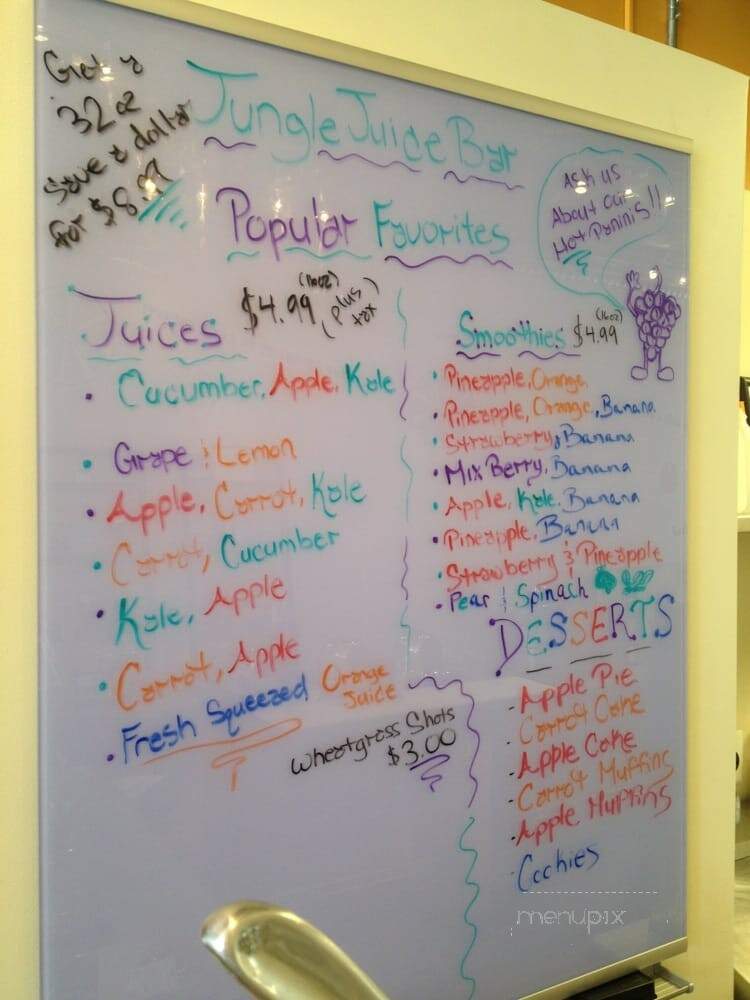 Get a
32oz
Save a dollar
for $8.97
Jungle Juice Bar
Popular Favorites
Ask us
About our
Hot Paninis!!
Juices $4.99 (16oz) (plus tax)
• Cucumber, Apple, Kale
• Grape & Lemon
• Apple, Carrot, Kale
• Carrot, Cucumber
• Kale, Apple
• Carrot, Apple
• Fresh Squeezed Orange Juice
Wheatgrass Shots
$3.00
Smoothies $4.99 (16oz)
• Pineapple, Orange
• Pineapple, Orange, Banana
• Strawberry, Banana
• Mix Berry, Banana
• Apple, Kale, Banana
• Pineapple, Banana
• Strawberry & Pineapple
• Pear & Spinach
DESSERTS
- Apple Pie
- Carrot Cake
- Apple Cake
- Carrot Muffins
- Apple Muffins
- Cookies
menupix